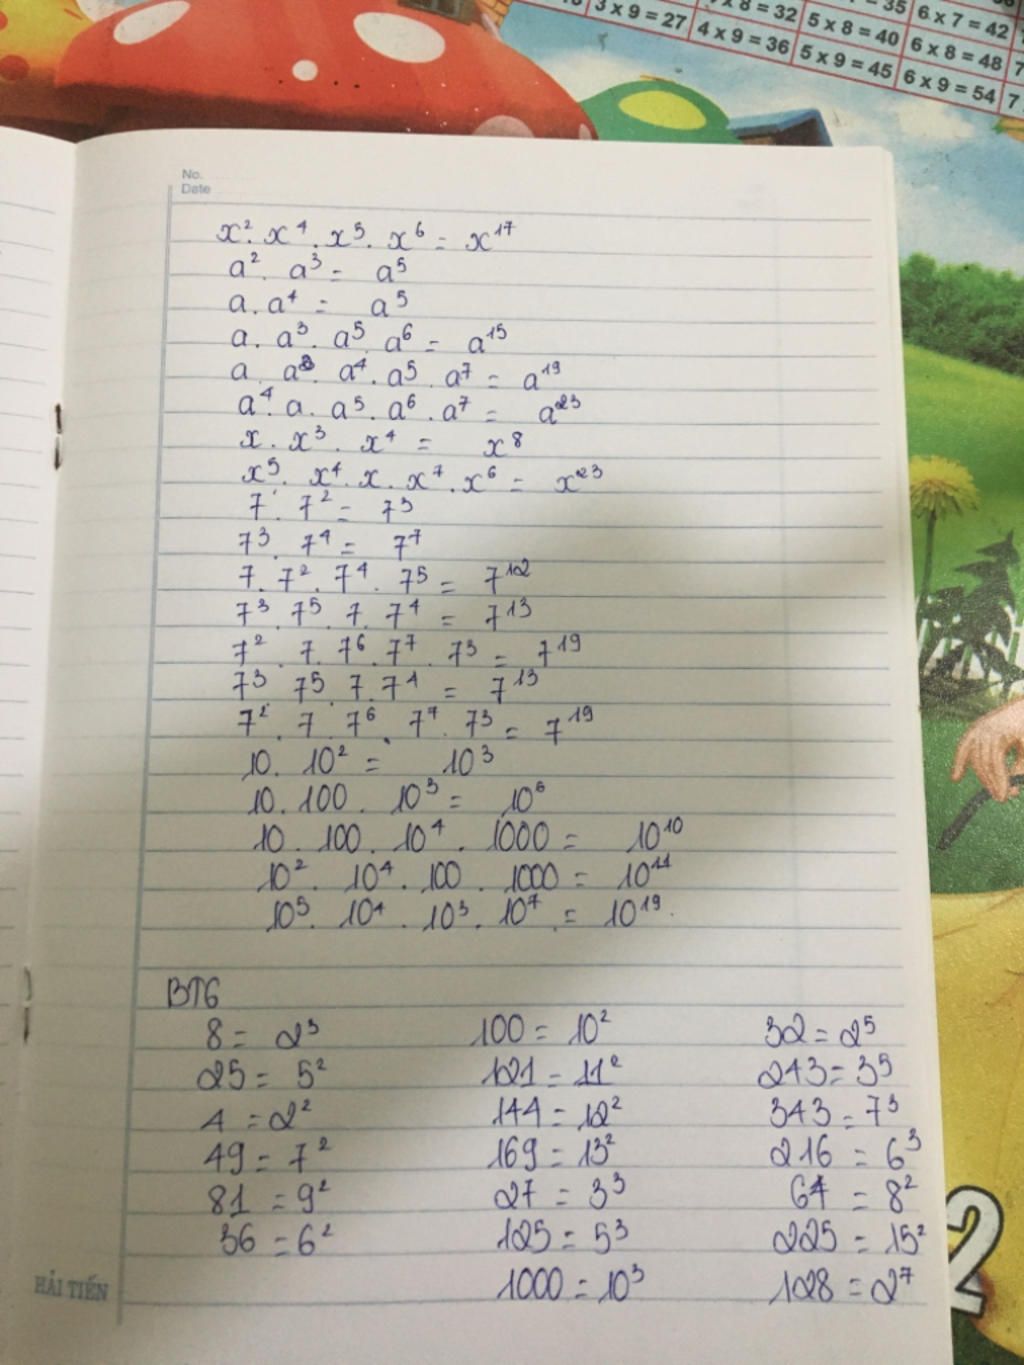 3 x 9 = 27
4 x 9 = 36
x 8 = 32
5 x 8 = 40
5 x 9 = 45
= 35
6 x 7 = 42
6 x 8 = 48
6 x 9 = 54
7
7
No.
Date
x². x⁴. x⁵. x⁶ = x¹⁷
a². a³ = a⁵
a. a⁴ = a⁵
a. a³. a⁵. a⁶ = a¹⁵
a. a. a⁴. a⁵. a⁷ = a¹⁹
a⁴. a. a⁵. a⁶. a⁷ = a²³
x. x³. x⁴ = x⁸
x⁵. x⁴. x. x⁷. x⁶ = x²³
7. 7² = 7³
7³. 7⁴ = 7⁷
7. 7². 7⁴. 7⁵ = 7¹²
7³. 7⁵. 7. 7⁴ = 7¹³
7². 7. 7⁶. 7⁷. 7³ = 7¹⁹
7³. 7⁵. 7. 7⁴ = 7¹³
7². 7. 7⁶. 7⁷. 7³ = 7¹⁹
10. 10² = 10³
10. 100. 10³ = 10⁶
10. 100. 10⁴. 1000 = 10¹⁰
10². 10⁴. 100. 1000 = 10¹¹
10⁵. 10⁴. 10³. 10⁷. = 10¹⁹.
BT6
8 = 2³ 100 = 10² 32 = 2⁵
25 = 5² 121 = 11² 243 = 3⁵
4 = 2² 144 = 12² 343 = 7³
49 = 7² 169 = 13² 216 = 6³
81 = 9² 27 = 3³ 64 = 8²
36 = 6² 125 = 5³ 225 = 15²
1000 = 10³ 128 = 2⁷
HẢI TIẾN
2